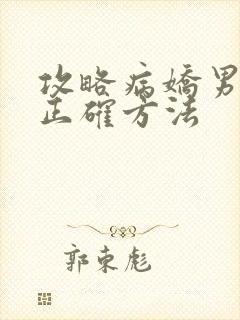 攻略病嬌男
正確方法
郭東彪